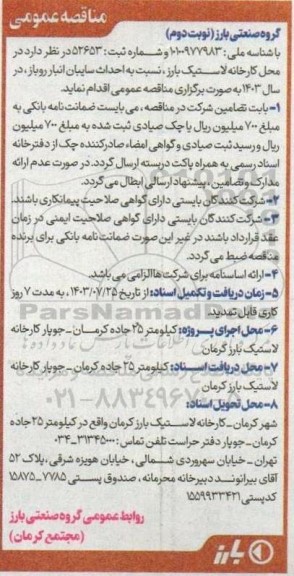 مناقصه عمومی
گروه صنعتی بارز (نوبت دوم)
با شناسه ملی: ۱۰۱۰۰۹۷۷۹۸۳ و شماره ثبت: ۵۲۶۵۳ در نظر دارد در
محل کارخانه لاستیک بارز، نسبت به احداث سایبان انبار روباز، در
سال ۱۴۰۳ به صورت برگزاری مناقصه عمومی اقدام نماید.
۱- بابت تضامین شرکت در مناقصه، می بایست ضمانت نامه بانکی به
مبلغ ۷۰۰ میلیون ریال یا چک صیادی ثبت شده به مبلغ ۷۰۰ میلیون
ریال و رسید ثبت صیادی و گواهی امضاء صادر کننده چک از دفترخانه
اسناد رسمی به همراه پاکت دربسته ارسال گردد. در صورت عدم ارائه
مدارک و تضامین، پیشنهاد ارسالی ابطال می گردد.
۲- شرکت کنندگان بایستی دارای گواهی صلاحیت پیمانکاری باشند.
۳- شرکت کنندگان بایستی دارای گواهی صلاحیت ایمنی در زمان
عقد قرارداد باشند در غیر این صورت ضمانت نامه بانکی برای برنده
مناقصه ضبط می گردد.
۴- ارائه اساسنامه برای شرکت ها الزامی می باشد.
۵- زمان دریافت و تکمیل اسناد: از تاریخ ۱۴۰۳/۰۷/۲۵، به مدت ۷ روز
کاری قابل تمدید.
۶- محل اجرای پروژه: کیلومتر ۲۵ جاده کرمان - جوپار کارخانه
لاستیک بارز کرمان
۷- محل دریافت اسناد: کیلومتر ۲۵ جاده کرمان - جوپار کارخانه
لاستیک بارز کرمان
۸- محل تحویل اسناد:
شهر کرمان - کارخانه لاستیک بارز کرمان واقع در کیلومتر ۲۵ جاده
کرمان - جوپار دفتر حراست تلفن تماس: ۳۱۳۴۵۰۰۰-۰۳۴
تهران - خیابان سهروردی شمالی، خیابان هویزه شرقی، پلاک ۵۲
آقای بیرانوند دبیرخانه محرمانه، صندوق پستی ۷۷۸۵-۱۵۸۷۵
کدپستی ۱۵۵۹۹۳۳۴۲۱
روابط عمومی گروه صنعتی بارز
(مجتمع کرمان)
بارز
ParsNamad
۰۲۱-۸۸۳۴۹۶۷۰